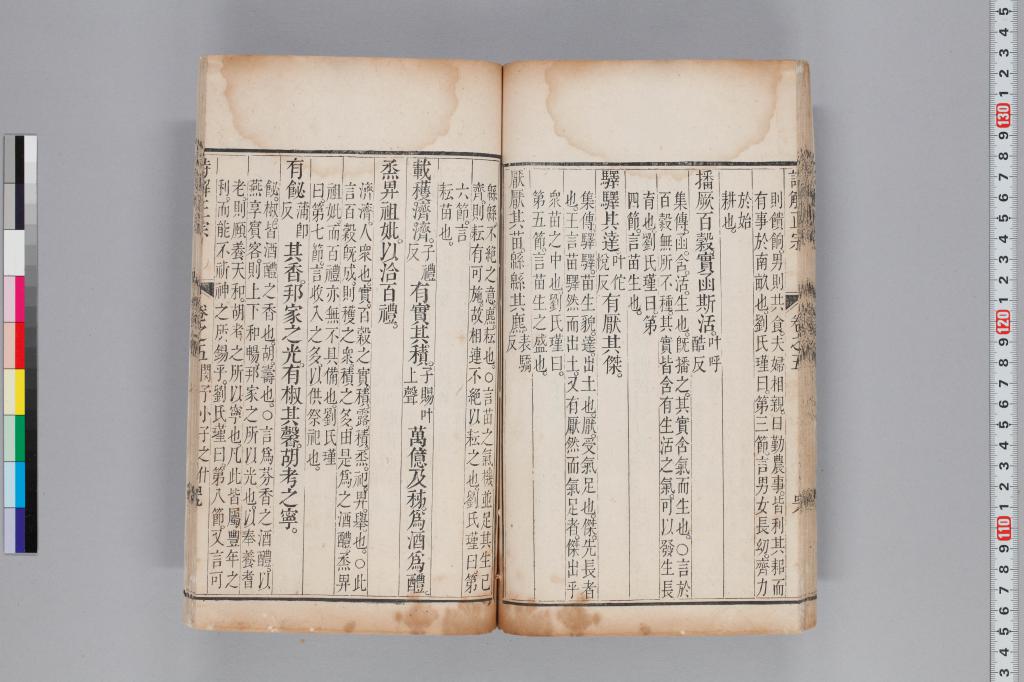 則饋餉男則共食夫婦相親日勤農事皆利其耜而
有事於南畝也劉氏瑾曰第三節言男女長幼齊力
於始
耕也
播厥百穀實函斯活叶呼酷反
集傳函含活生也旣播之其實含氣而生也○言於
百穀無所不種其實皆含有生活之氣可以發生長
育也劉氏瑾曰第
四節言苗生也
驛驛其達叶佗悅反有厭其傑
集傳驛驛苗生貌達出土也厭受氣足也傑先長者
也王言苗驛然而出土又有厭然而氣足者傑出乎
衆苗之中也劉氏瑾曰
第五節言苗生之盛也
厭厭其苗緜緜其麃表驕反
緜緜不絶之意麃耘也○言苗之氣機並足其生已
齊則耘有可施故相連不絶以耘之也劉氏瑾曰第
六節言
耘苗也
載穫濟濟子禮反有實其積子賜叶上聲萬億及秭爲酒爲醴
烝畀祖妣以洽百禮
濟濟人衆也實百穀之實積露積烝祀畀舉也○此
言百穀旣成則穫之衆積之多由是爲之酒醴烝畀
祖妣而百禮亦無不具備也劉氏瑾
曰第七節言收入之多以供祭祀也
有飶蒲即反其香邦家之光有椒其馨胡考之寧
飶椒皆酒醴之香也胡壽也○言爲芬香之酒醴以
燕享賓客則上下和暢邦家之所以光也以奉養者
老則頤養天和胡考之所以寧也凡此皆屬豐年之
利而能不祈神之所錫乎劉氏瑾曰第八節又言可
詩解正宗 卷之五 閔予小子之什